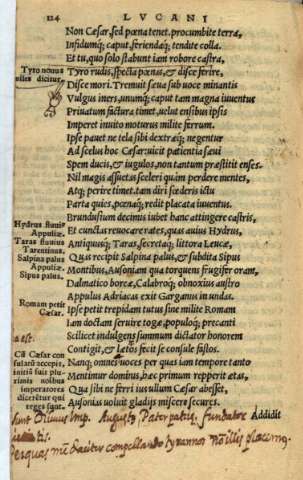 124 LVCANI
Non Cæsar, sed pœna tenet. procumbite terra,
Infidumq; caput, feriendaq; tendite colla.
Et tu, quo solo stabunt iam robore castra,
Tyro nouus
miles dicitur.
Tyro rudis, specta pœnas, & disce ferire,
Disce mori. Tremuit sæua sub uoce minantis
Vulgus iners, unumq; caput tam magna iuuentus
Priuatum factura timet, uelut ensibus ipsis
Imperet inuito moturus milite ferrum.
Ipse pauet ne tela sibi dextræq; negentur
Ad scelus hoc Cæsar: uicit patientia sæui
Spem ducis, & iugulos, non tantum præstitit enses.
Nil magis assuetas sceleri quàm perdere mentes,
Atq; perire timet. tam diri fœderis ictu
Parta quies, pœnaq; redit placata iuuentus.
Brundusium decimis iubet hanc attingere castris,
Hydrus fluuius
Apputiæ.
Taras fluuius
Tarentinus.
Salpina palus
Apputiæ.
Sipus palus.
Et cunctas reuocare rates, quas auius Hydrus,
Antiquusq; Taras, secretaq; littora Leucæ,
Quas recipit Salpina palus, & subdita Sipus
Montibus, Ausoniam qua torquens frugifer oram,
Dalmatico boreæ, Calabroq; obnoxius austro
Appulus Adriacas exit Garganus in undas.
Romam petit
Cæsar.
Ipse petit trepidam tutus sine milite Romam
Iam doctam seruire togæ. populoq; precanti
Scilicet indulgens summum dictator honorem
Contigit, & lætos fecit se consule fastos.
Cũ Cæsar con
sulatũ accepit,
initiũ fuit plu
rimis nosbis
imperatores
dicerẽtur qui
reges sunt.
Nanq; omnes uoces per quas iam tempore tanto
Mentimur dominis, hæc primum repperit ætas,
Qua sibi ne ferri ius ullum Cæsar abesset,
Ausonias uoluit gladiis miscere secures.
Addidit
Diuus Imp. Augustꝰ Pater patriæ
tyrannos